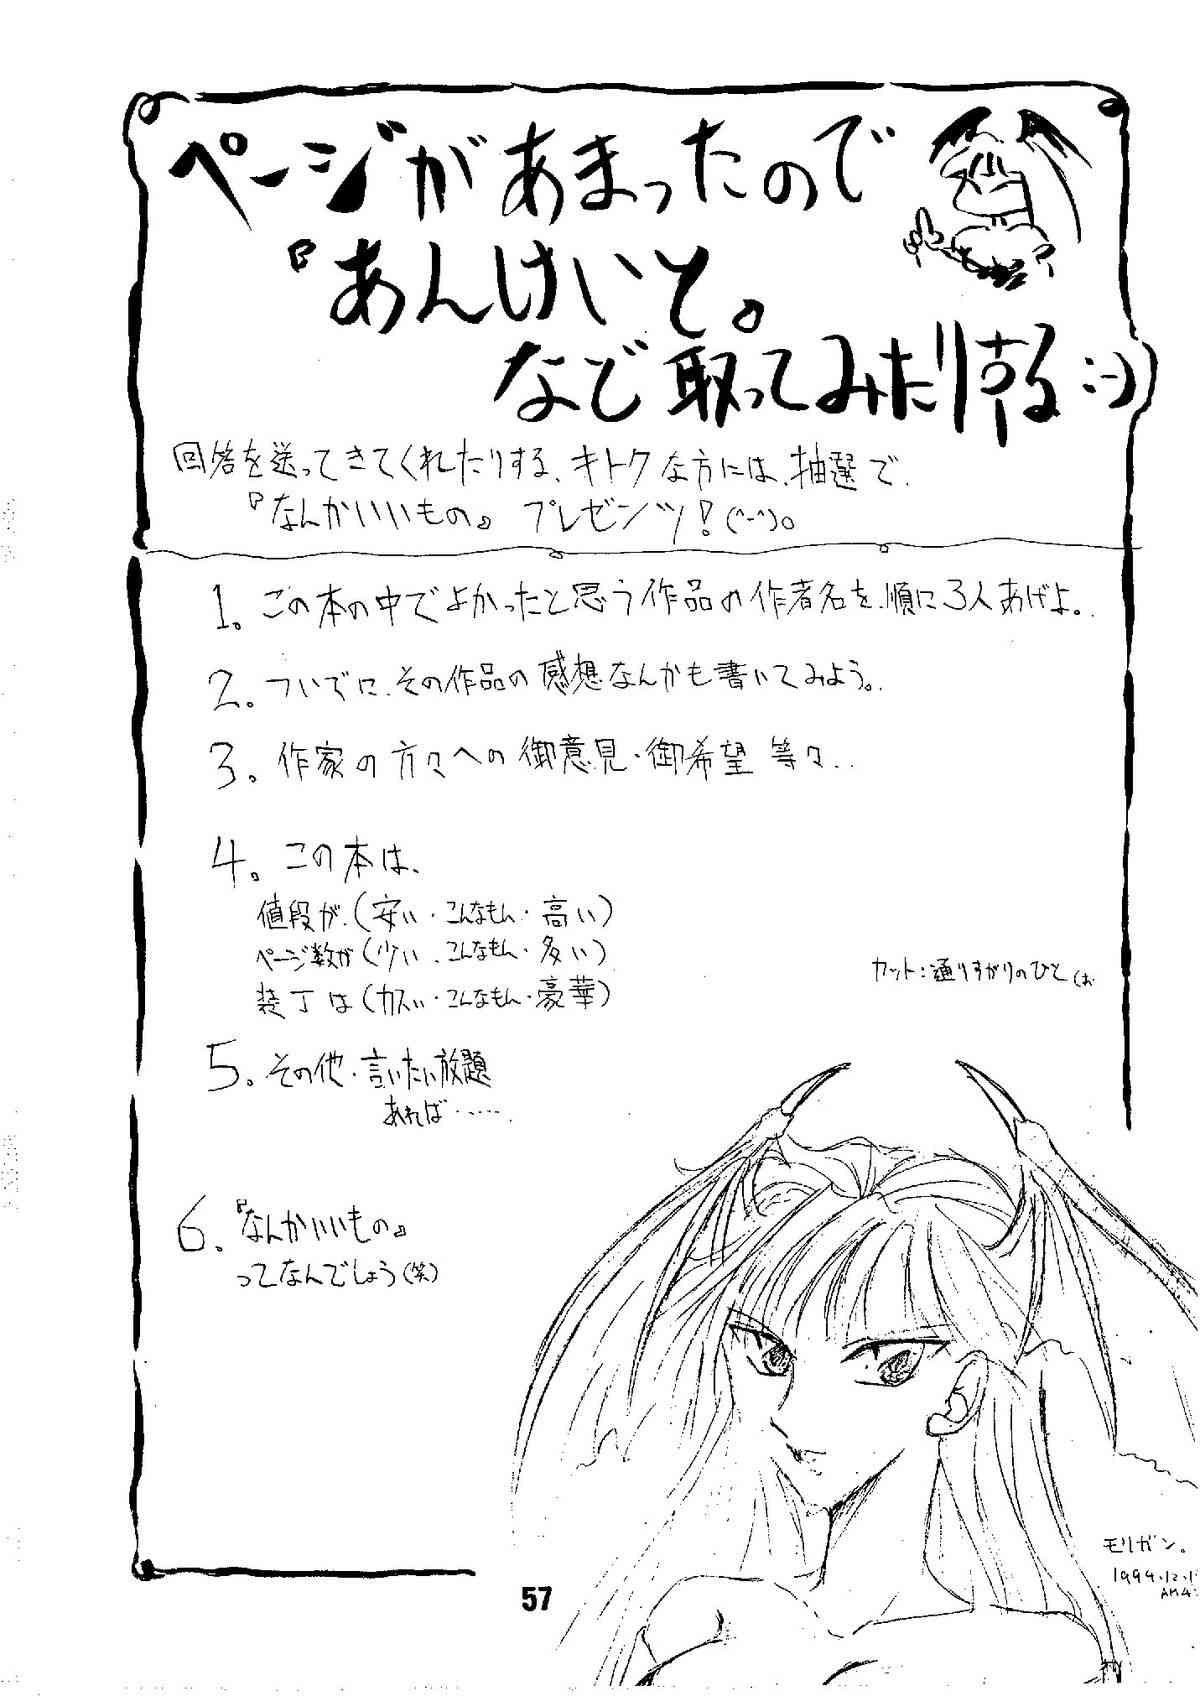 ページがあまったので
『あんけいと。
など取ってみたりする :-)
回答を送ってきてくれたりする、キトクな方には、抽選で、
『なんかいいもの』 プレゼンツ! (^-^)。
1。この本の中でよかったと思う作品の作者名を、順に3人あげよ。
2。ついでに、その作品の感想なんかも書いてみよう。
3。作家の方々への御意見・御希望 等々..
4。この本は、
値段が、(安い・こんなもん・高い)
ページ数が(少い・こんなもん・多い)
装丁は(カスい・こんなもん・豪華)
カット:通りすがりのひと(お
5。その他・言いたい放題
あれば……
6.『なんかいいもの』
ってなんでしょう(笑)
モリガン。
1994.12.1
AM4:
57